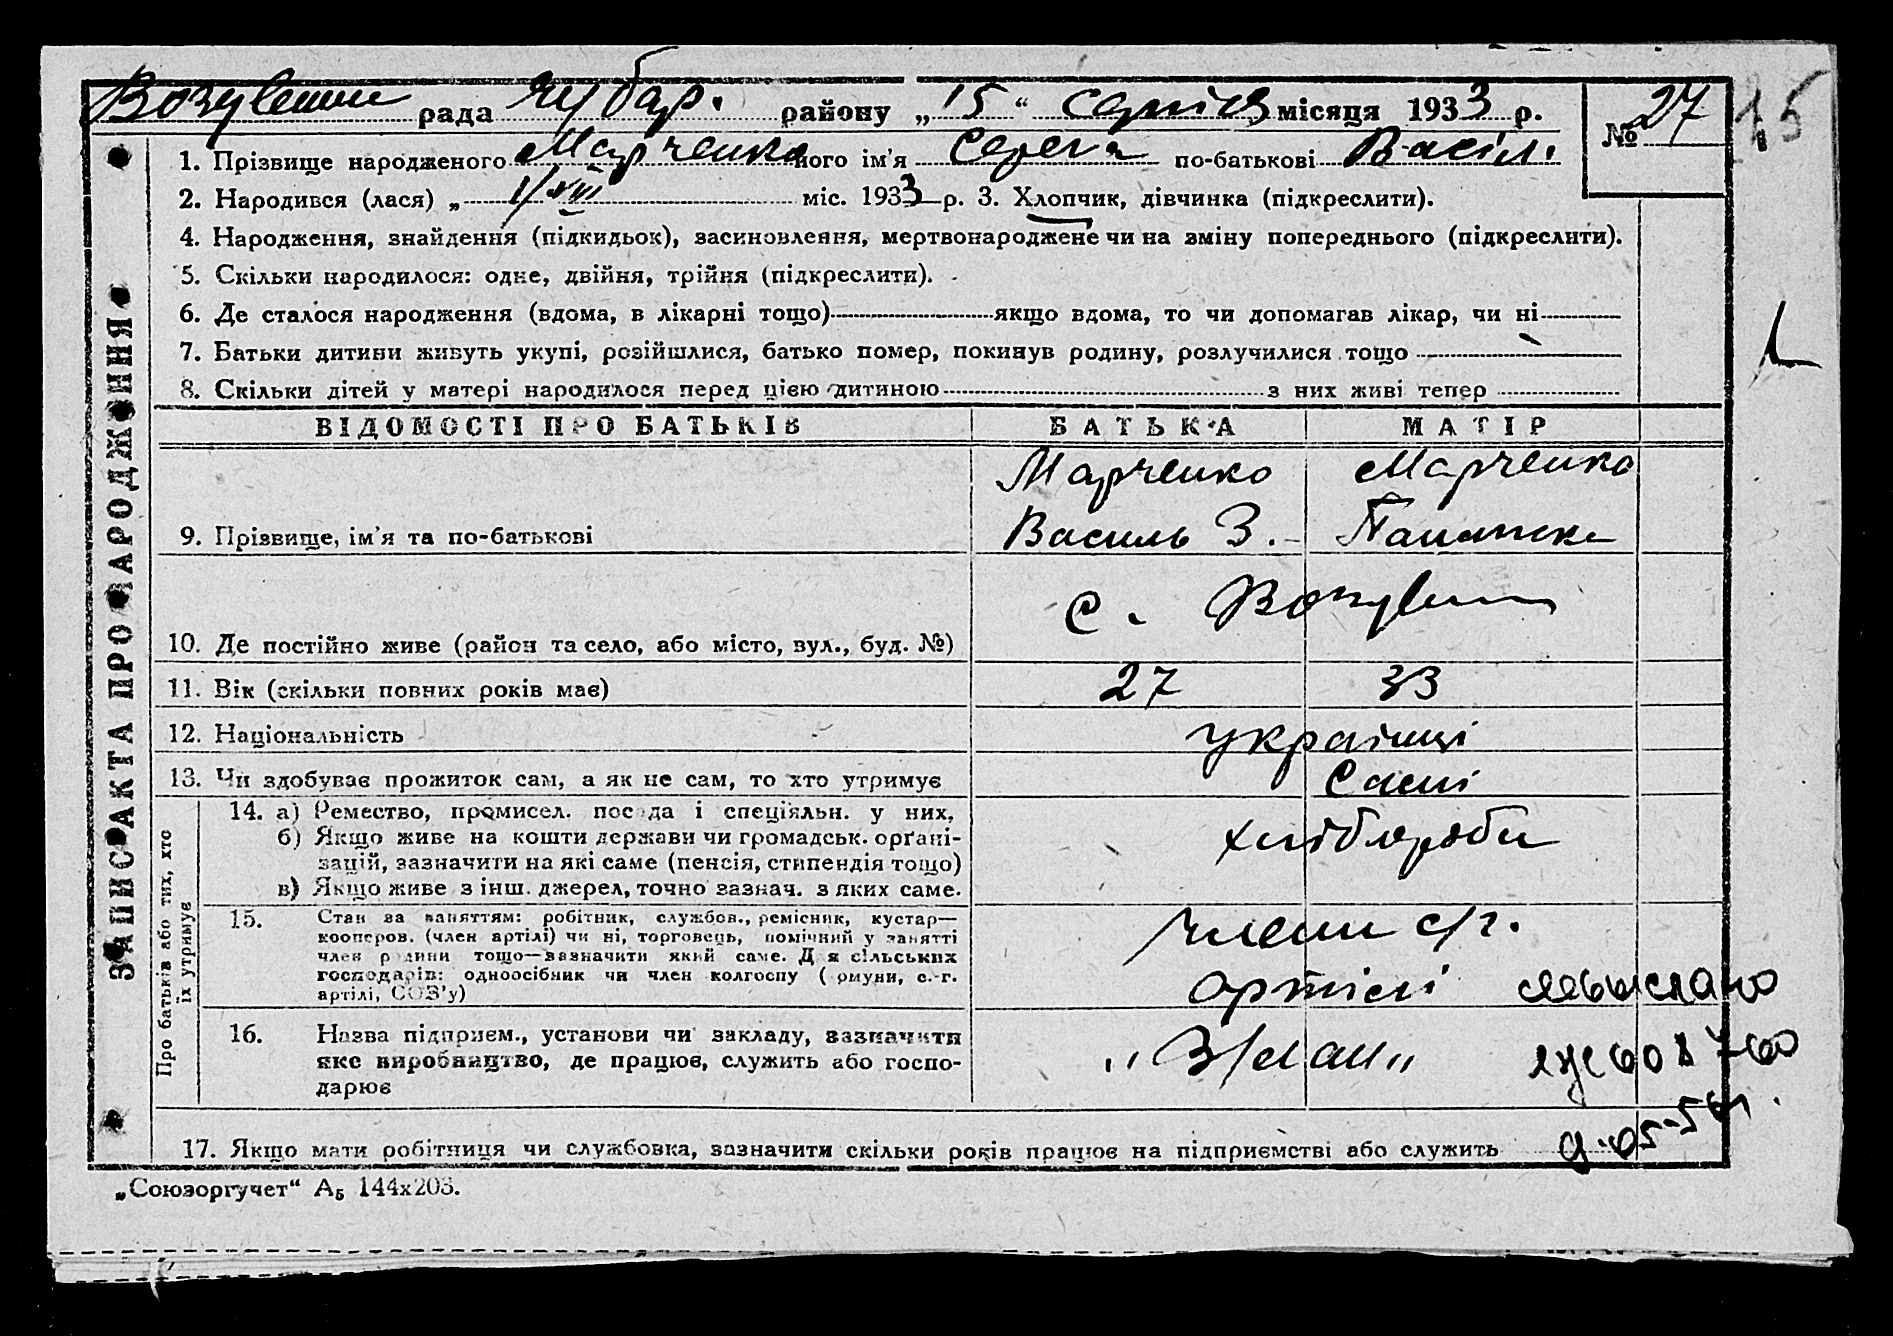 рада Чубар. району „15“ серпня місяця 1933 р. № 27 15
1. Прізвище народженого Марченко його ім'я Сергій по-батькові Васіл.
2. Народився (лася) „ 1/VIII міс. 1933 р. 3. Хлопчик, дівчинка (підкреслити).
4. Народження, знайдення (підкидьок), засиновлення, мертвонароджене чи на зміну попереднього (підкреслити).
5. Скільки народилося: одне, двійня, трійня (підкреслити).
6. Де сталося народження (вдома, в лікарні тощо) якщо вдома, то чи допомагав лікар, чи ні
7. Батьки дитини живуть укупі, розійшлися, батько помер, покинув родину, розлучилися тощо
8. Скільки дітей у матері народилося перед цією дитиною з них живі тепер
ЗАПИС АКТА ПРО НАРОДЖЕННЯ
ВІДОМОСТІ ПРО БАТЬКІВ БАТЬКА МАТІР
Марченко Марченко
9. Прізвище, ім'я та по-батькові Василь З.
с.
10. Де постійно живе (район та село, або місто, вул., буд. №)
11. Вік (скільки повних років має) 27 33
12. Національність українці
13. Чи здобуває прожиток сам, а як не сам, то хто утримує Самі
Про батьків або тих, хто їх утримує
14. а) Ремество, промисел. посада і спеціяльн. у них,
б) Якщо живе на кошти держави чи громадськ. орґані-
зацій, зазначити на які саме (пенсія, стипендія тощо)
в) Якщо живе з інш. джерел, точно зазнач. з яких саме.
хлібороби
15. Стан за заняттям: робітник, службов., ремісник, кустар—
кооперов. (член артілі) чи ні, торговець, помічний у занятті
член родини тощо—зазначити який саме. Для сільських
господарів: одноосібник чи член колгоспу (комуни, с.-г.
артілі, СОЗ'у)
члени с/г.
артілі
16. Назва підприєм., установи чи закладу, зазначити
яке виробництво, де працює, служить або госпо-
дарює
17. Якщо мати робітниця чи службовка, зазначити скільки років працює на підприємстві або служить
„Союзоргучет“ А₅ 144х203.